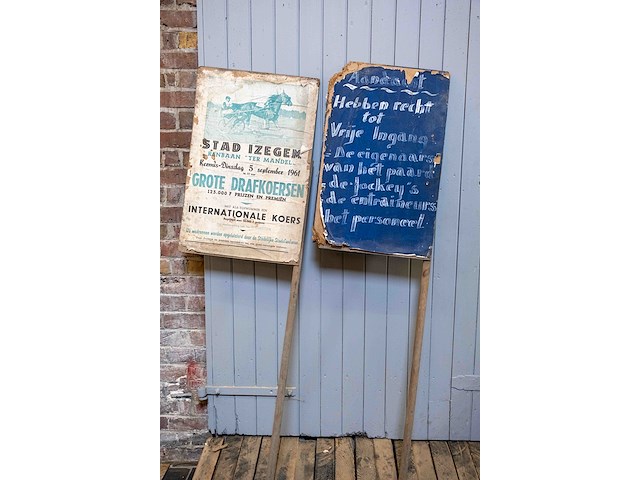 STAD IZEGEM
RENBAAN "TER MANDEL"
Kermis-Dinsdag 5 september 1961
GROTE DRAFKOERSEN
125.000 F PRIJZEN EN PREMIËN
INTERNATIONALE KOERS
Aandacht
Hebben recht
tot
Vrije Ingang
De eigenaars
van het paard
de jockey's
de entraineurs
het personeel.